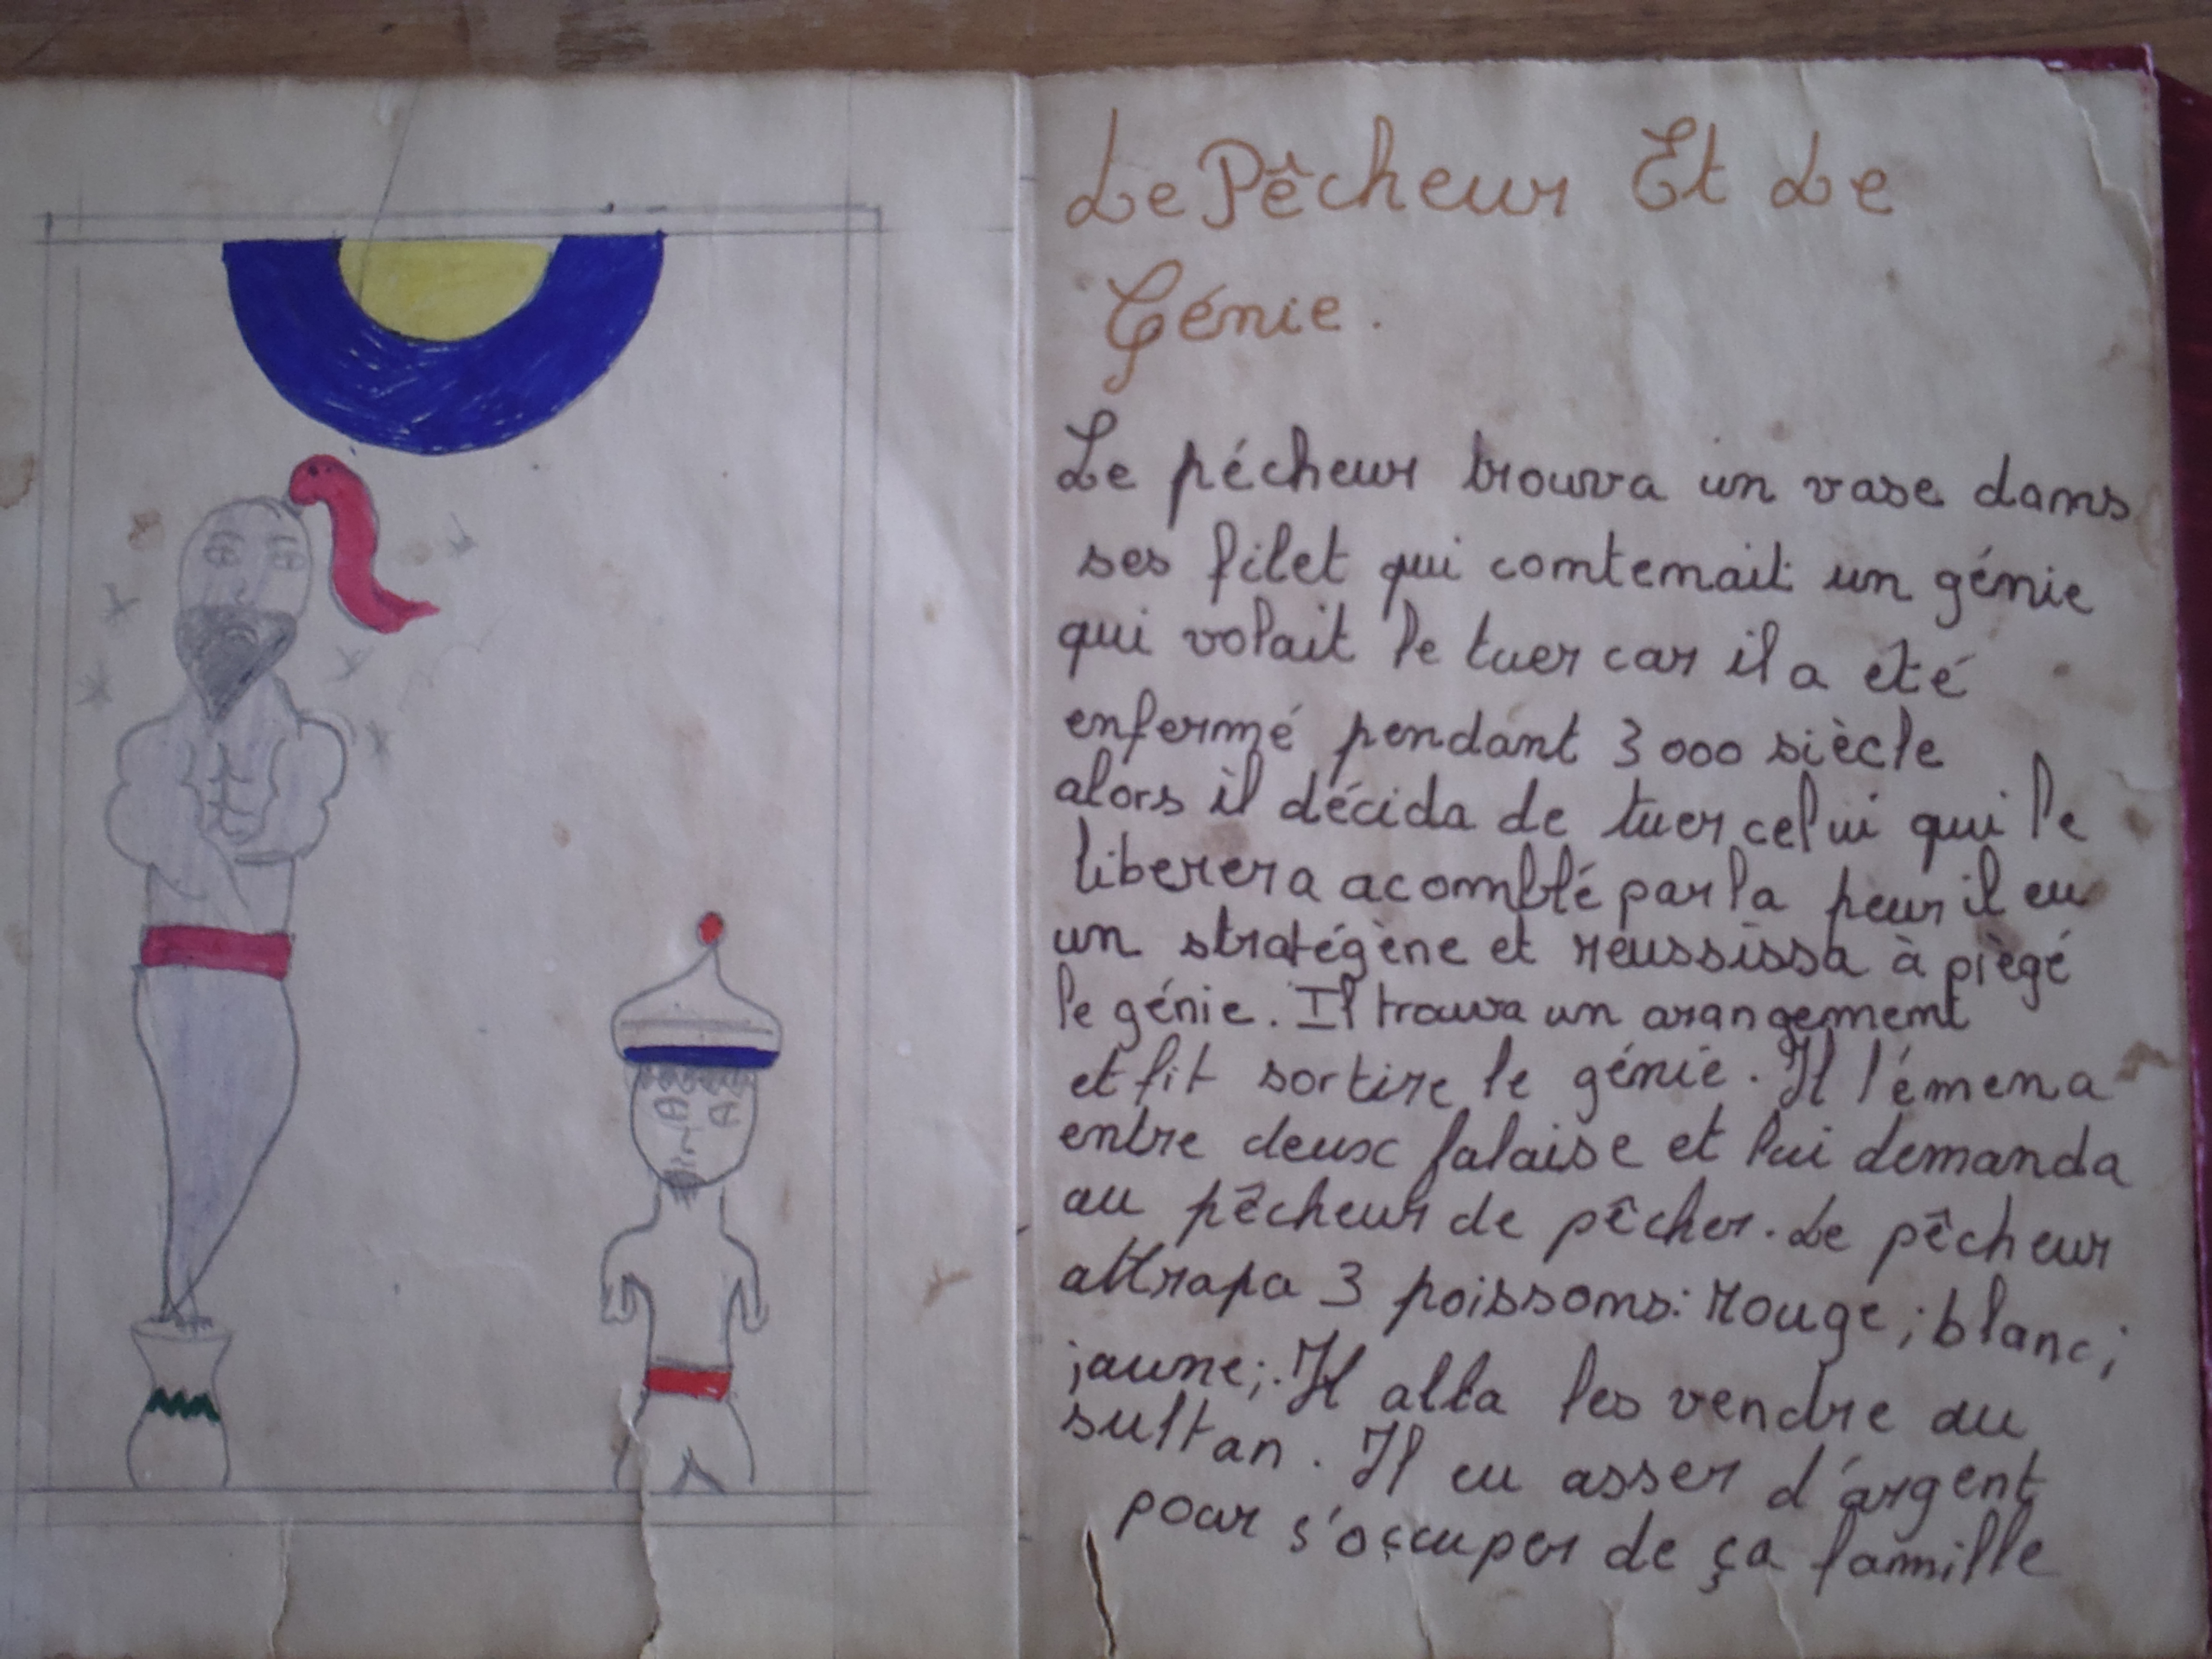 Le Pêcheur Et Le
Génie.
Le pécheur trouva un vase dams
ses filet qui comtemait un génie
qui volait le tuer car il a été
enfermé pendant 3 000 siècle
alors il décida de tuer celui qui le
liberera acomblé par la peur il eu
un stratégène et réussissa à piègé
le génie. Il trouva un arangement
et fit sortire le génie. Il l'émena
entre deux falaise et lui demanda
au pêcheur de pêcher. Le pêcheur
attrapa 3 poissoms: rouge; blanc;
jaune;. Il alla les vendre au
sultan. Il eu asser d'argent
pour s'occuper de ça famille